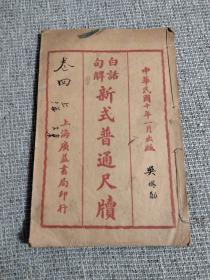 中華民國十年一月出版
白話
句解
新式普通尺牘
上海廣益書局印行
卷四
吳